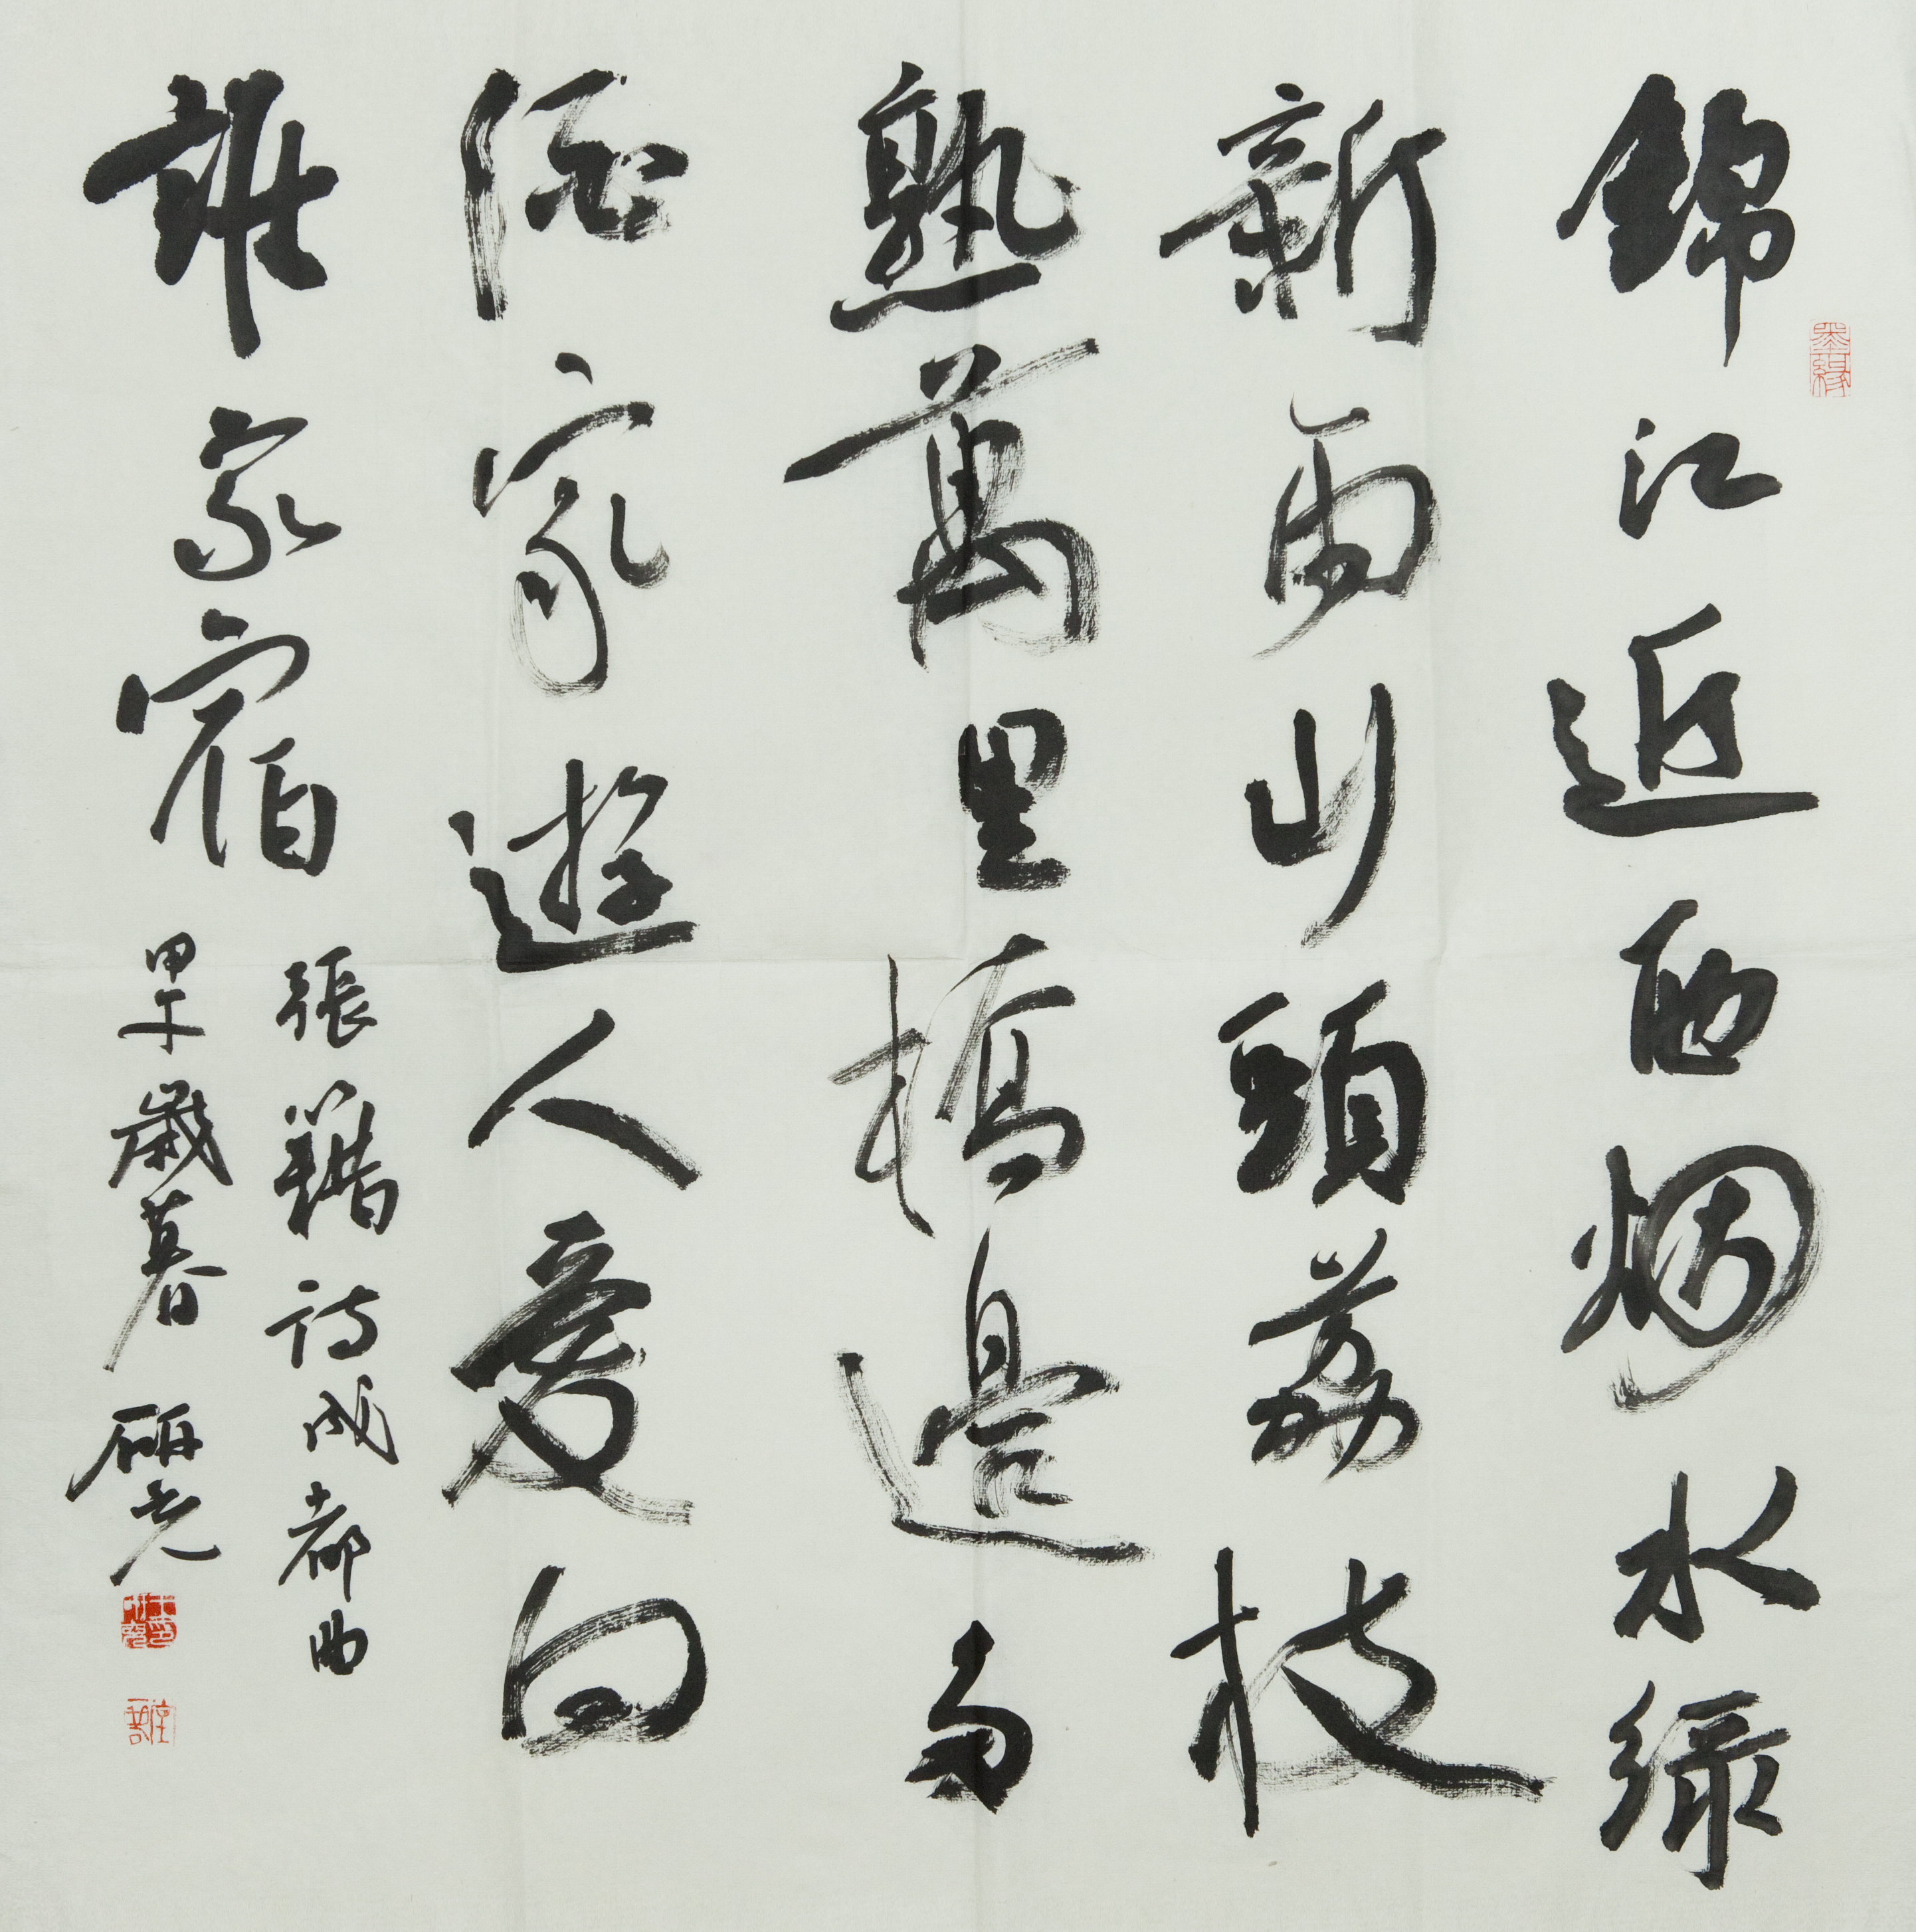 錦江近西烟水綠
新雨山頭荔枝
熟萬里橋邊多
酒家遊人愛向
誰家宿
張籍詩成都曲
甲午歲暮 研光
墨緣